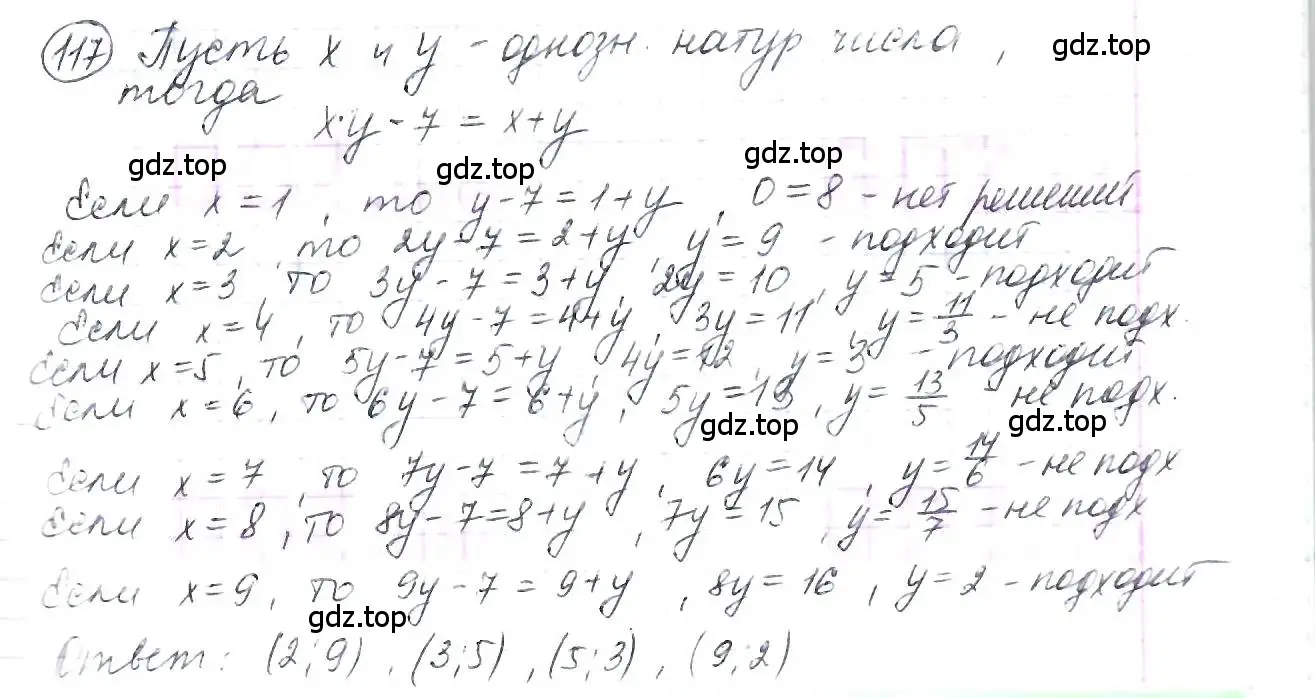 117 Пусть x и y – однозн. натур числа, gdz.top
тогда
x·y - 7 = x+y
gdz.top gdz.top gdz.top
Если x=1, то y-7=1+y, 0=8 - нет решений
Если x=2, то 2y-7=2+y, y=9 - подходит
Если x=3, то 3y-7=3+y, 2y=10, y=5 - подходит
Если x=4, то 4y-7=4+y, 3y=11, y=11/3 - не подх.
Если x=5, то 5y-7=5+y, 4y=12, y=3 - подходит
Если x=6, то 6y-7=6+y, 5y=13, y=13/5 - не подх.
gdz.top gdz.top
Если x=7, то 7y-7=7+y, 6y=14, y=14/6 - не подх
Если x=8, то 8y-7=8+y, 7y=15, y=15/7 - не подх
Если x=9, то 9y-7=9+y, 8y=16, y=2 - подходит
gdz.top
Ответ: (2;9), (3;5), (5;3), (9;2)